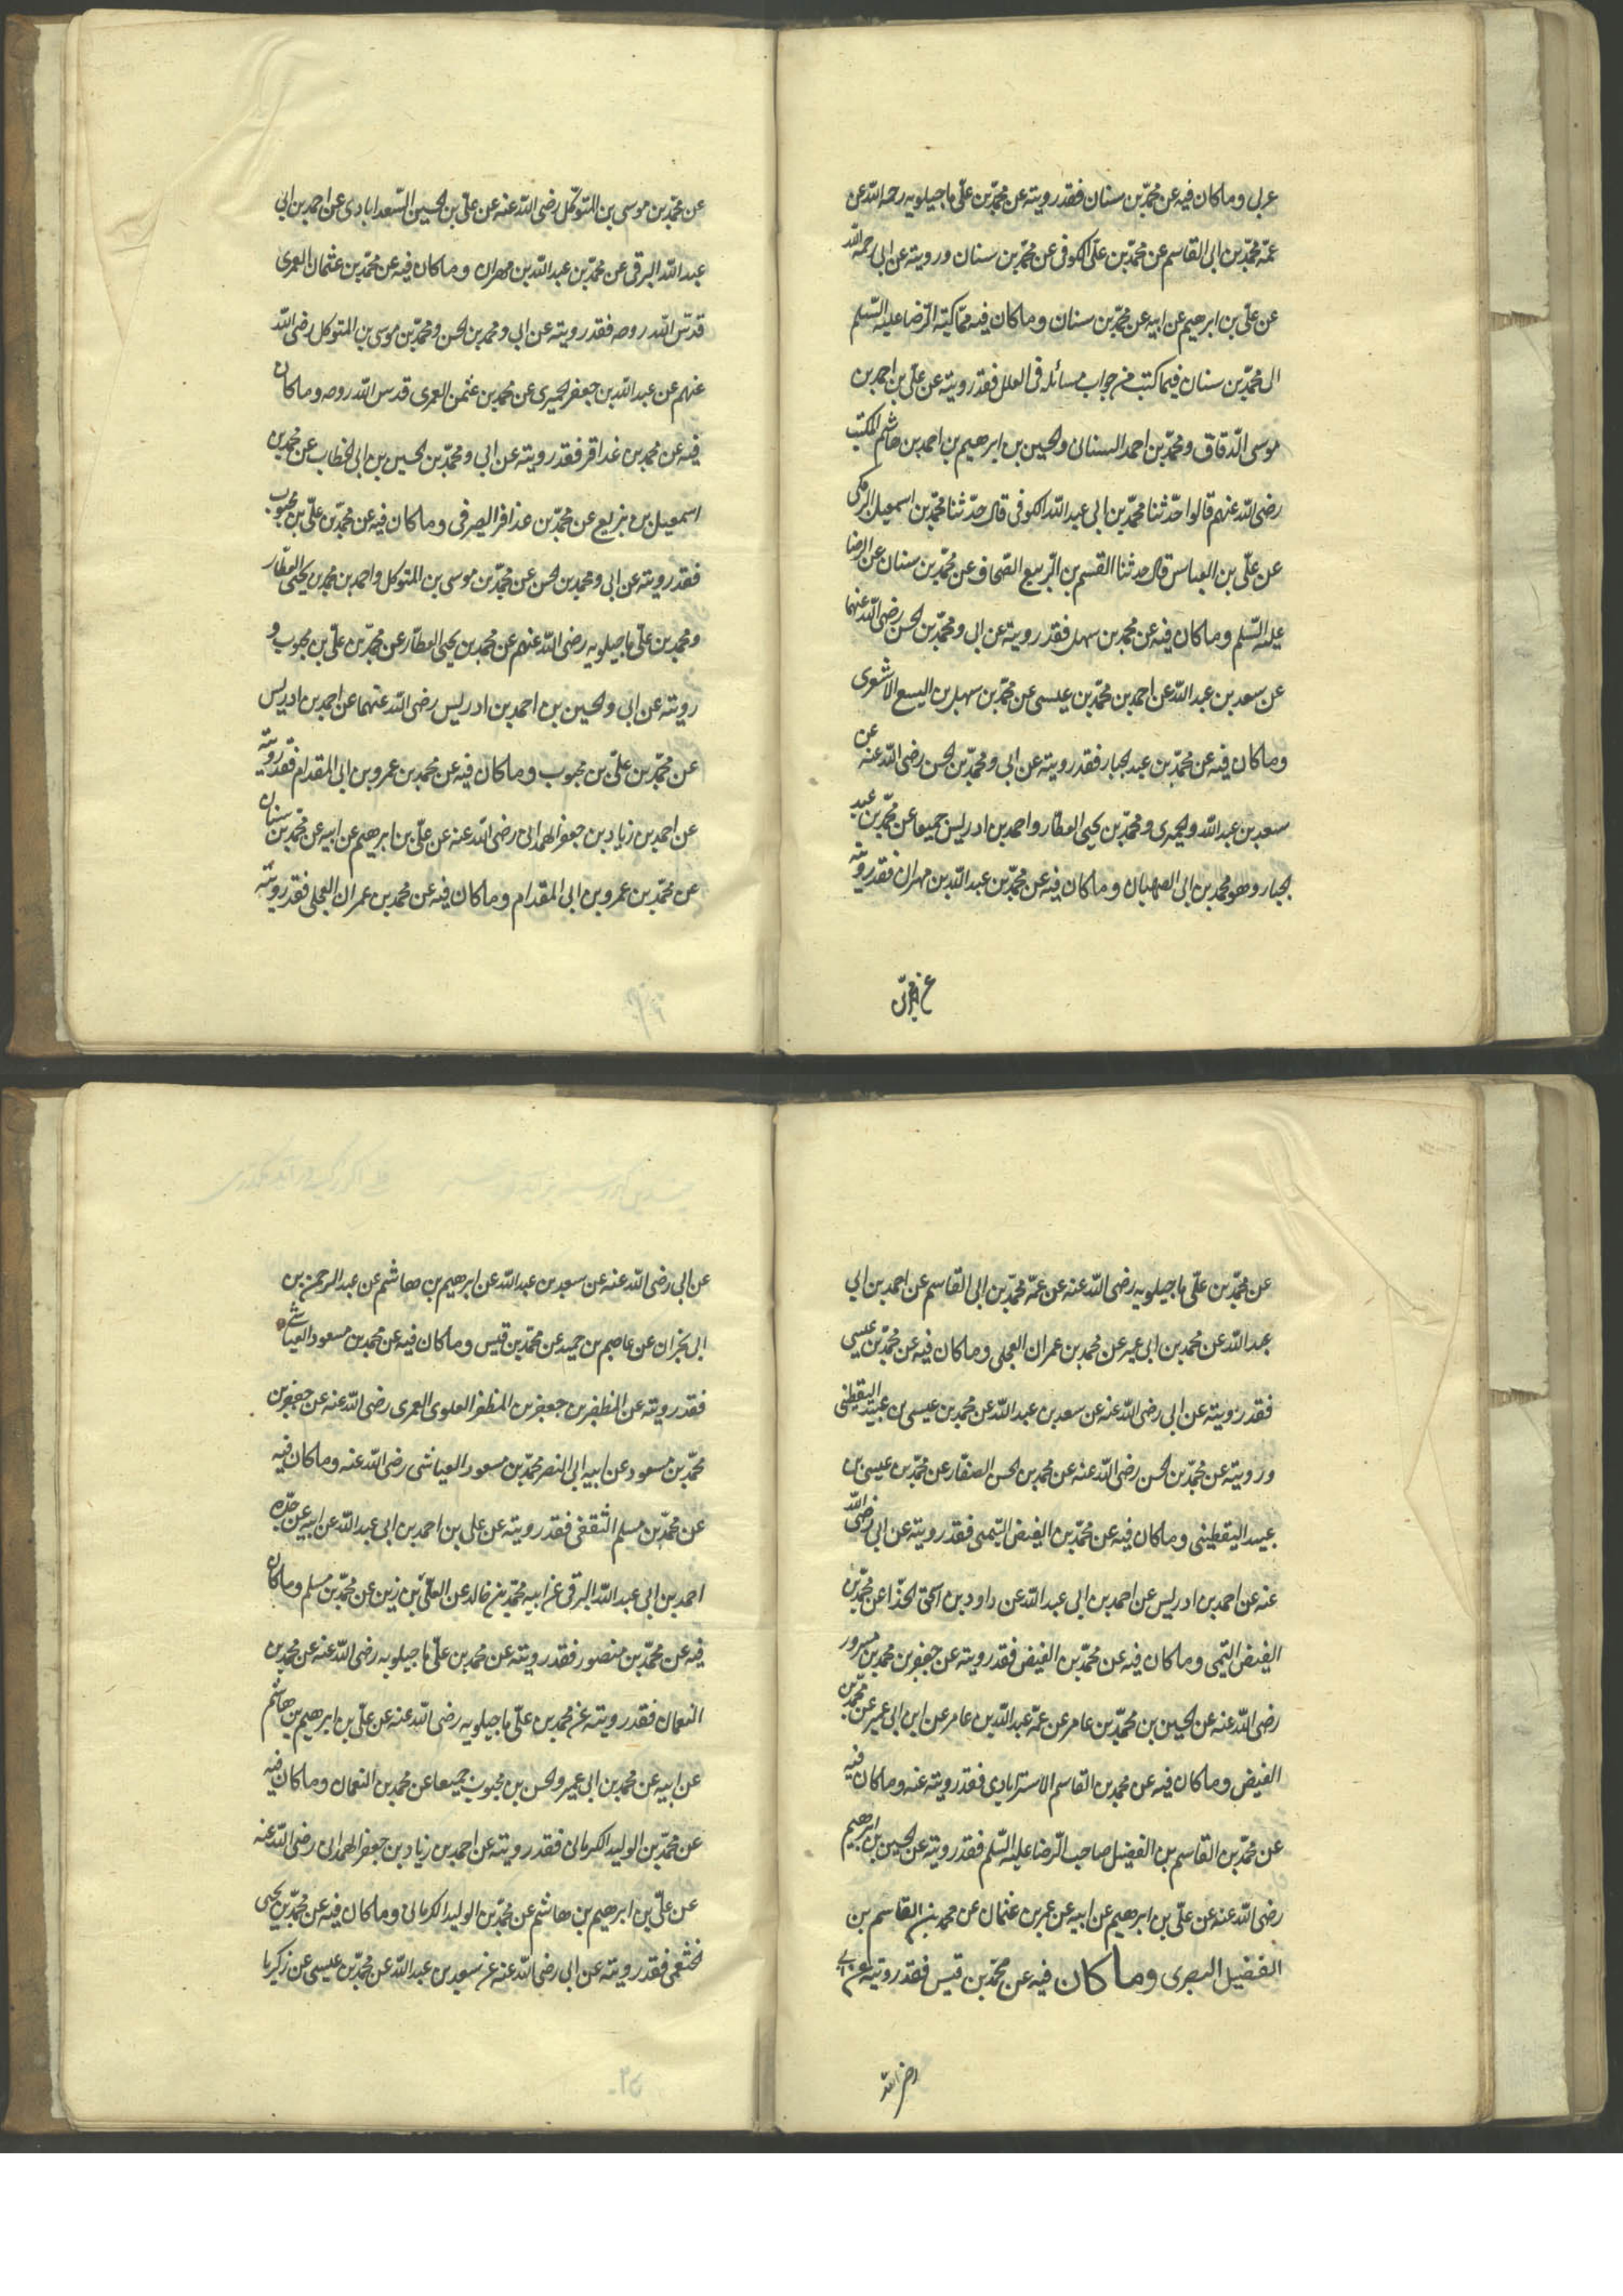 عربى وما كان فيه عن محمّد بن سنان فقد رويته عن محمّد بن علّى ماجيلويه رحمه اللّه عن
عمّه محمّد بن ابى القاسم عن محمّد بن علّى الكوفى عن محمّد بن سنان ورويته عن ابى رحمه اللّه
عن علّى بن ابرهيم عن ابيه عن محمّد بن سنان وما كان فيه ممّا كتبه الرّضا عليه السّلم
الى محمّد بن سنان فيما كتب من جواب مسائله فى العلل فقد رويته عن علّى بن احمد بن
موسى الدّقاق ومحمّد بن احمد السنانى والحسين بن ابرهيم بن احمد بن هاشم المكتب
رضى اللّه عنهم قالوا حدّثنا محمّد بن ابى عبد اللّه الكوفى قال حدّثنا محمّد بن اسمعيل البرمكى
عن علّى بن العباس قال حدثنا القسم بن الرّبيع الصّحاف عن محمّد بن سنان عن الرضا
عليه السّلم وما كان فيه عن محمد بن سهل فقد رويته عن ابى ومحمّد بن الحسن رضى اللّه عنهما
عن سعد بن عبد اللّه عن احمد بن محمّد بن عيسى عن محمّد بن سهل بن اليسع الاشعرى
وما كان فيه عن محمّد بن عبد الجبار فقد رويته عن ابى ومحمّد بن الحسن رضى اللّه عنه عن
سعد بن عبد اللّه والحميرى ومحمّد بن يحيى العطّار واحمد بن ادريس جميعا عن محمّد بن عبد
الجبار وهو محمد بن ابى الصهبان وما كان فيه عن محمّد بن عبد اللّه بن مهران فقد رويته
عن محمّد بن موسى بن المتوكّل رضى اللّه عنه عن علّى بن الحسين السّعدابادى عن احمد بن ابى
عبد اللّه البرقى عن محمّد بن عبد اللّه بن مهران وما كان فيه عن محمّد بن عثمان العمرى
قدّس اللّه روحه فقد رويته عن ابى ومحمد بن الحسن ومحمّد بن موسى بن المتوكل رضى اللّه
عنهم عن عبد اللّه بن جعفر الحميرى عن محمد بن عثمن العمرى قدس اللّه روحه وما كان
فيه عن محمد بن عذافر فقد رويته عن ابى ومحمّد بن الحسين بن ابى الخطاب عن محمد بن
اسمعيل بن بزيع عن محمّد بن عذافر الصيرفى وما كان فيه عن محمّد بن علّى بن محبوب
فقد رويته عن ابى ومحمد بن الحسن عن محمّد بن موسى بن المتوكل واحمد بن محمد بن يحيى العطّار
ومحمد بن علّى ماجيلويه رضى اللّه عنهم عن محمد بن يحيى العطّار عن محمّد بن علّى بن محبوب و
رويته عن ابى والحسين بن احمد بن ادريس رضى اللّه عنهما عن احمد بن ادريس
عن محمّد بن علّى بن محبوب وما كان فيه عن محمد بن عمرو بن ابى المقدام فقد رويته
عن احمد بن زياد بن جعفر الهمدانى رضى اللّه عنه عن علّى بن ابرهيم عن ابيه عن محمّد بن سنان
عن محمّد بن عمرو بن ابى المقدام وما كان فيه عن محمد بن عمران العجلى فقد رويته
عن محمّد بن علّى ماجيلويه رضى اللّه عنه عن عمّه محمّد بن ابى القاسم عن احمد بن ابى
عبد اللّه عن محمد بن ابى عمير عن محمد بن عمران العجلى وما كان فيه عن محمّد بن عيسى
فقد رويته عن ابى رضى اللّه عنه عن سعد بن عبد اللّه عن محمد بن عيسى بن عبيد اليقطينى
ورويته عن محمّد بن الحسن رضى اللّه عنه عن محمد بن الحسن الصفار عن محمّد بن عيسى بن
عبيد اليقطينى وما كان فيه عن محمّد بن الفيض التيمى فقد رويته عن ابى رضى اللّه
عنه عن احمد بن ادريس عن احمد بن ابى عبد اللّه عن داود بن اسحق الحذّاء عن محمّد بن
الفيض التيمى وما كان فيه عن محمّد بن الفيض فقد رويته عن جعفر بن محمد بن مسرور
رضى اللّه عنه عن الحسين بن محمّد بن عامر عن عمّه عبد اللّه بن عامر عن ابن ابى عمير عن محمّد بن
الفيض وما كان فيه عن محمد بن القاسم الاسترابادى فقد رويته عنه وما كان فيه
عن محمّد بن القاسم بن الفضيل صاحب الرّضا عليه السّلم فقد رويته عن الحسين بن ابرهيم
رضى اللّه عنه عن علّى بن ابرهيم عن ابيه عن عمر بن عثمان عن محمد بن القاسم بن
الفضيل البصرى وما كان فيه عن محمّد بن قيس فقد رويته عن ابى
رضى اللّه
عن ابى رضى اللّه عنه عن سعد بن عبد اللّه عن ابرهيم بن هاشم عن عبد الرحمن بن
ابى نجران عن عاصم بن حميد عن محمّد بن قيس وما كان فيه عن محمد بن مسعود العياشى
فقد رويته عن المظفر بن جعفر بن المظفر العلوى العمرى رضى اللّه عنه عن جعفر بن
محمّد بن مسعود عن ابيه ابى النصر محمّد بن مسعود العياشى رضى اللّه عنه وما كان فيه
عن محمّد بن مسلم الثقفى فقد رويته عن على بن احمد بن ابى عبد اللّه عن ابيه عن جدّه
احمد بن ابى عبد اللّه البرقى عن ابيه محمّد بن خالد عن العلاء بن رزين عن محمّد بن مسلم وما كان
فيه عن محمّد بن منصور فقد رويته عن محمد بن علّى ماجيلويه رضى اللّه عنه عن محمد بن
النعمان فقد رويته عن محمد بن علّى ماجيلويه رضى اللّه عنه عن علّى بن ابرهيم بن هاشم
عن ابيه عن محمد بن ابى عمير والحسن بن محبوب جميعا عن محمد بن النعمان وما كان فيه
عن محمّد بن الوليد الكرمانى فقد رويته عن احمد بن زياد بن جعفر الهمدانى رضى اللّه عنه
عن علّى بن ابرهيم بن هاشم عن محمّد بن الوليد الكرمانى وما كان فيه عن محمّد بن يحيى
الخثعمى فقد رويته عن ابى رضى اللّه عنه عن سعد بن عبد اللّه عن محمّد بن عيسى عن زكريا